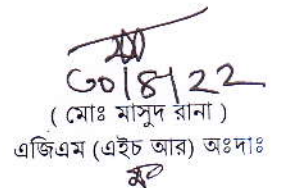 ৩০/৪/২২
( মোঃ মাসুদ রানা )
এজিএম (এইচ আর) অঃদাঃ